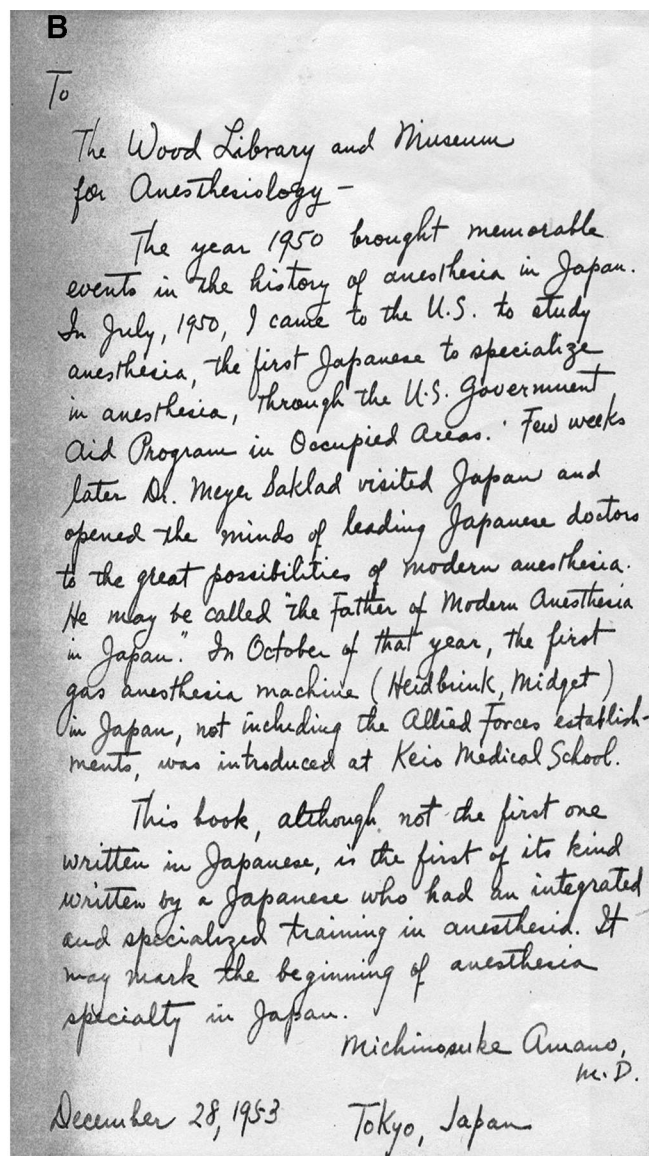 B
To
The Wood Library and Museum
for Anesthesiology —
The year 1950 brought memorable
events in the history of anesthesia in Japan.
In July, 1950, I came to the U.S. to study
anesthesia, the first Japanese to specialize
in anesthesia, through the U.S. Government
Aid Program in Occupied Areas. Few weeks
later Dr. Meyer Saklad visited Japan and
opened the minds of leading Japanese doctors
to the great possibilities of modern anesthesia.
He may be called "the Father of Modern Anesthesia
in Japan." In October of that year, the first
gas anesthesia machine (Heidbrink, Midget)
in Japan, not including the Allied Forces establish-
ments, was introduced at Keio Medical School.
This book, although not the first one
written in Japanese, is the first of its kind
written by a Japanese who had an integrated
and specialized training in anesthesia. It
may mark the beginning of anesthesia
specialty in Japan.
Michinosuke Amano,
M.D.
December 28, 1953 Tokyo, Japan